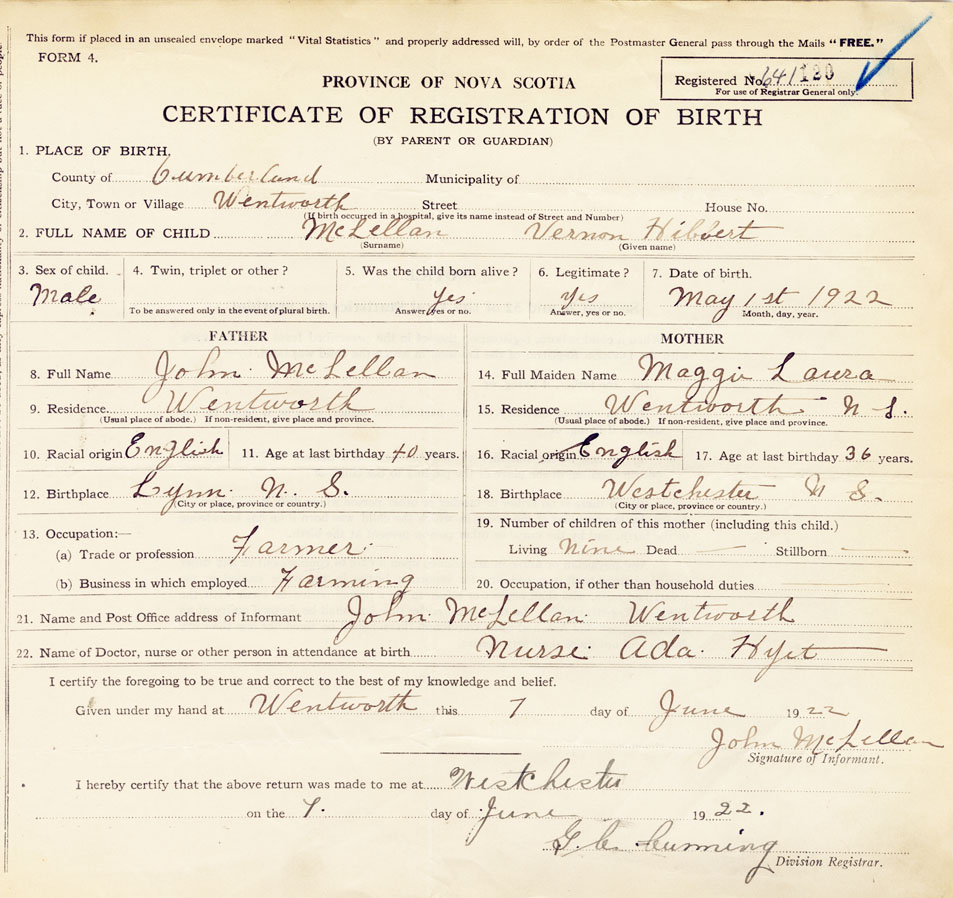 This form if placed in an unsealed envelope marked "Vital Statistics" and properly addressed will, by order of the Postmaster General pass through the Mails "FREE."
FORM 4.
PROVINCE OF NOVA SCOTIA
Registered No. 641120
For use of Registrar General only.
CERTIFICATE OF REGISTRATION OF BIRTH
(BY PARENT OR GUARDIAN)
1. PLACE OF BIRTH.
County of Cumberland Municipality of
City, Town or Village Wentworth Street House No.
(If birth occurred in a hospital, give its name instead of Street and Number)
2. FULL NAME OF CHILD McLellan Vernon Hibbert
(Surname) (Given name)
3. Sex of child. 4. Twin, triplet or other? 5. Was the child born alive? 6. Legitimate? 7. Date of birth.
Male Yes Yes May 1st 1922
To be answered only in the event of plural birth. Answer, yes or no. Answer, yes or no. Month, day, year.
FATHER MOTHER
8. Full Name John McLellan 14. Full Maiden Name Maggie Laura
9. Residence Wentworth 15. Residence Wentworth N S.
(Usual place of abode.) If non-resident, give place and province. (Usual place of abode.) If non-resident, give place and province.
10. Racial origin English 11. Age at last birthday 40 years. 16. Racial origin English 17. Age at last birthday 36 years.
12. Birthplace Lynn N. S. 18. Birthplace Westchester N S.
(City or place, province or country.) (City or place, province or country.)
13. Occupation:— 19. Number of children of this mother (including this child.)
(a) Trade or profession Farmer Living Nine Dead — Stillborn —
(b) Business in which employed Farming 20. Occupation, if other than household duties
21. Name and Post Office address of Informant John McLellan Wentworth
22. Name of Doctor, nurse or other person in attendance at birth Nurse Ada
I certify the foregoing to be true and correct to the best of my knowledge and belief.
Given under my hand at Wentworth this 7 day of June 1922
John McLellan
Signature of Informant.
I hereby certify that the above return was made to me at Westchester
on the 7. day of June 1922.
G. C. Cumming
Division Registrar.